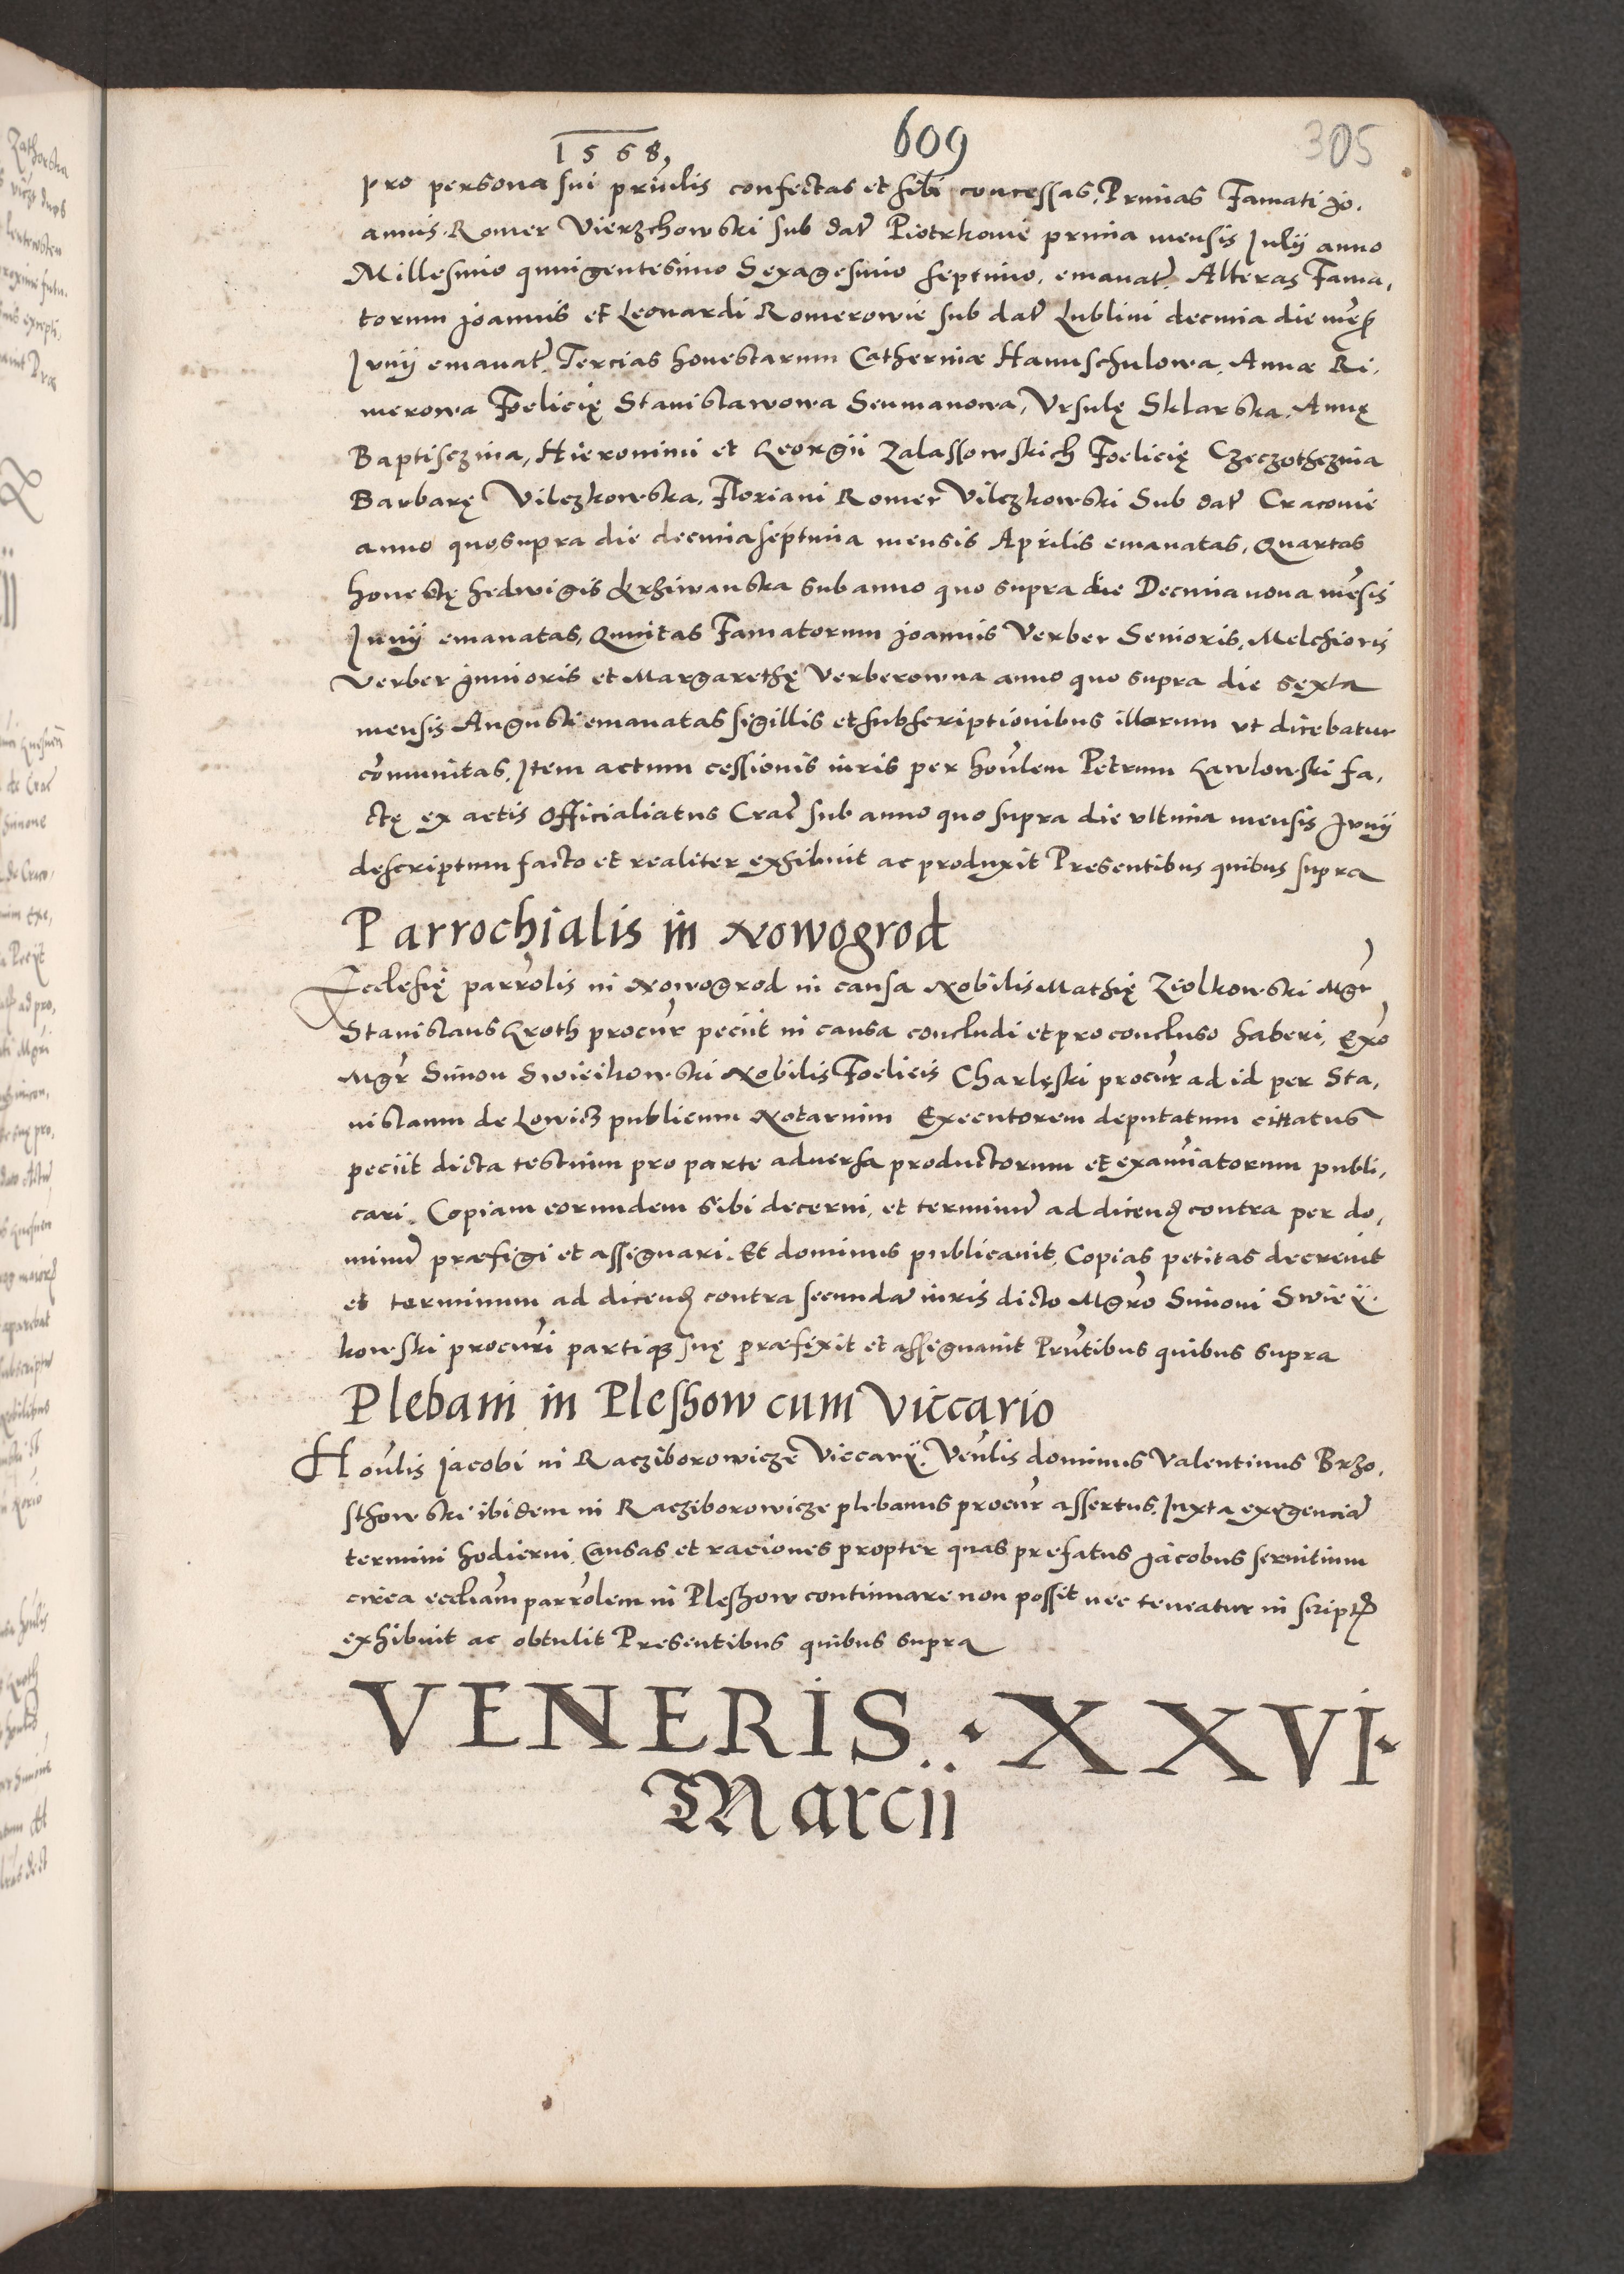 1568,
609
305
pro persona sui priulis confectas et sibi concessas, Primas Famati Jo,
annis Romer Vierzchowski sub dat Piotrkowie prima mensis Julij anno
Millesimo quingentesimo Sexagesimo septimo, emanat Alteras Fama,
torum Joannis et Leonardi Romerowie sub dat Lublini decima die mens
Junij emanat Tercias honestarum Catherinæ Hanuschulowa, Annæ Ri,
merowa Foelicię Stanislawowa Seumanowa, Vrsulę Sklarska, Annę
Baptisczina, Hieronimi et Georgii Zalassowskich Foelicię Czeczothczina
Barbarę Vilczkowska, Floriani Romer Vilczkowski Sub dat Cracovie
anno quo supra die decimaseptima mensis Aprilis emanatas, Quartas
honestę hedwigis sub anno quo supra die Decima nona mesis
Junij emanatas, Quintas Famatorum Joannis Verber Senioris, Melchioris
Verber Junioris et Margarethę Verberowna anno quo supra die sexta
mensis Augusti emanatas sigillis et subscriptionibus illorum vt dicebatur
comunitas, Item actum cessionis iuris per honlem Petrum Gawlowski fa,
ctę ex actis Officialiatus Crac sub anno quo supra die vltima mensis Junij
descriptum facto et realiter exhibuit ac produxit Presentibus quibus supra
Parrochialis in Nowogrod
Ecclesię parrolis in Nowogrod in causa Nobilis Mathię Ziolkowski Mgr
Stanislaus Groth procur peciit in causa concludi et pro concluso haberi, Exo
Mgr Simon Swieikowski Nobilis Foelicis Charlęski procur ad id per Sta,
nislaum de Lowicz publicum Notarium Executorem deputatum cittatus
peciit dicta testium pro parte aduersa productorum et examinatorum publi,
cari, Copiam eorundem sibi decerni, et terminum ad dicend contra per do,
minum præfigi et assignari. Et dominus publicauit, Copias petitas decreuit
et terminum ad dicend contra secunda iuris dicto Mgro Simoni Swiey,
kowski procuri partique suę præfixit et assignauit Prntibus quibus supra
Plebani in Pleshow cum Viccario
Honlis Jacobi in Racziborowicze Viccarij. Venlis dominus Valentinus Brzo,
sthowski ibidem in Racziborowicze plebanus procur assertus, Iuxta exigencia
termini hodierni, Causas et raciones propter quas prefatus Jacobus seruitium
circa eccliam parrolem in Pleshow continuare non possit nec teneatur in script
exhibuit ac obtulit Presentibus quibus supra
VENERIS · XXVI·
Marcij